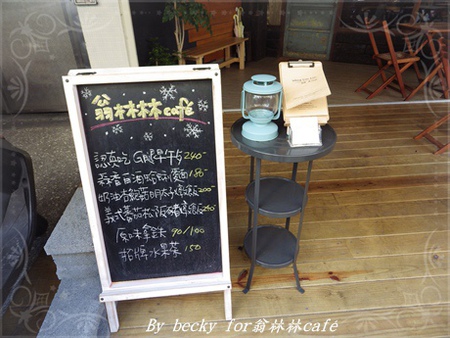 翁林林林café
認真吃 GM早午ち 240
蒜香白酒蛤蜊麵 180
奶油鮭魚明太子燉飯 200
義式蕃茄松阪豬燉飯 250
原味拿鐵 90/100
招牌水果茶 150
By becky for翁林林林café